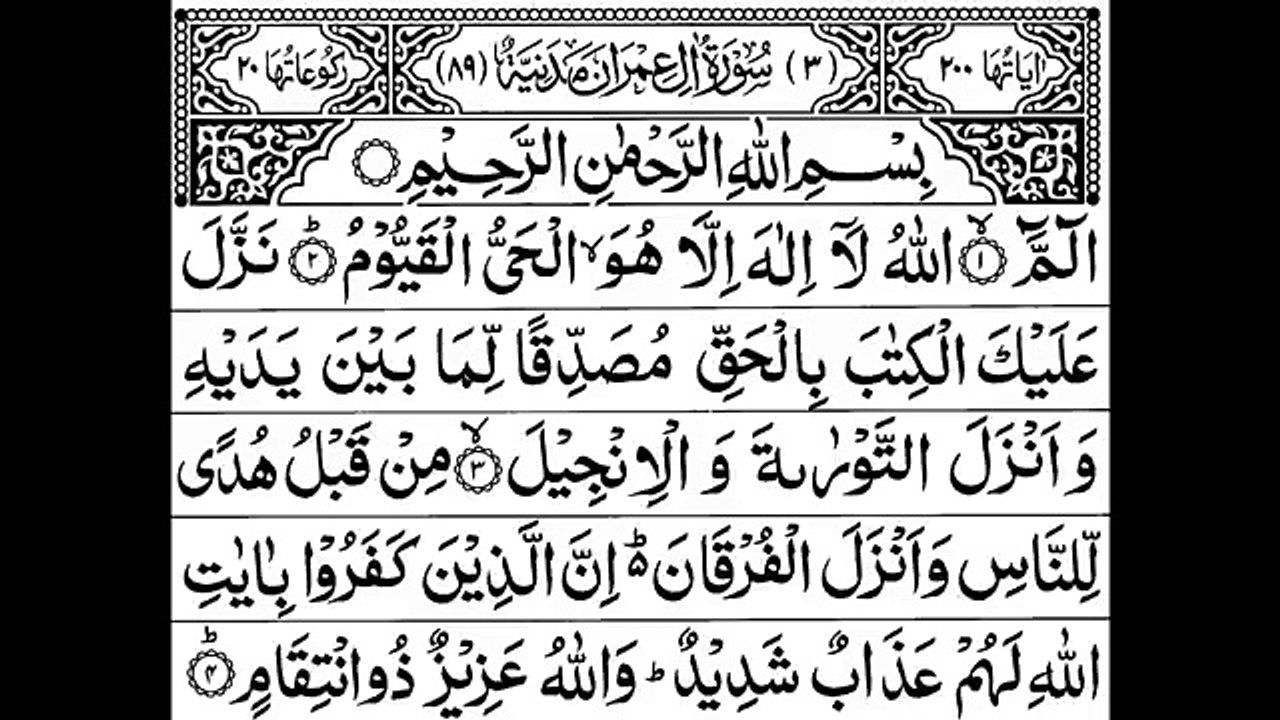 اٰيَاتُهَا ٢٠٠ (٣) سُوْرَةُ اٰلِ عِمْرٰنَ مَدَنِيَّةٌ (٨٩) رُكُوْعَاتُهَا ٢٠
بِسْمِ اللّٰهِ الرَّحْمٰنِ الرَّحِيْمِ
الٓمّٓ ۙ‏﴿١﴾ اللّٰهُ لَاۤ اِلٰهَ اِلَّا هُوَ ۙ الْحَىُّ الْقَيُّوْمُ ؕ‏﴿٢﴾ نَزَّلَ
عَلَيْكَ الْكِتٰبَ بِالْحَقِّ مُصَدِّقًا لِّمَا بَيْنَ يَدَيْهِ
وَ اَنْزَلَ التَّوْرٰىةَ وَ الْاِنْجِيْلَ ۙ‏﴿٣﴾ مِنْ قَبْلُ هُدًى
لِّلنَّاسِ وَاَنْزَلَ الْفُرْقَانَ ۵ؕ اِنَّ الَّذِيْنَ كَفَرُوْا بِاٰيٰتِ
اللّٰهِ لَهُمْ عَذَابٌ شَدِيْدٌ ؕ وَاللّٰهُ عَزِيْزٌ ذُوانْتِقَامٍ ؕ‏﴿۴﴾